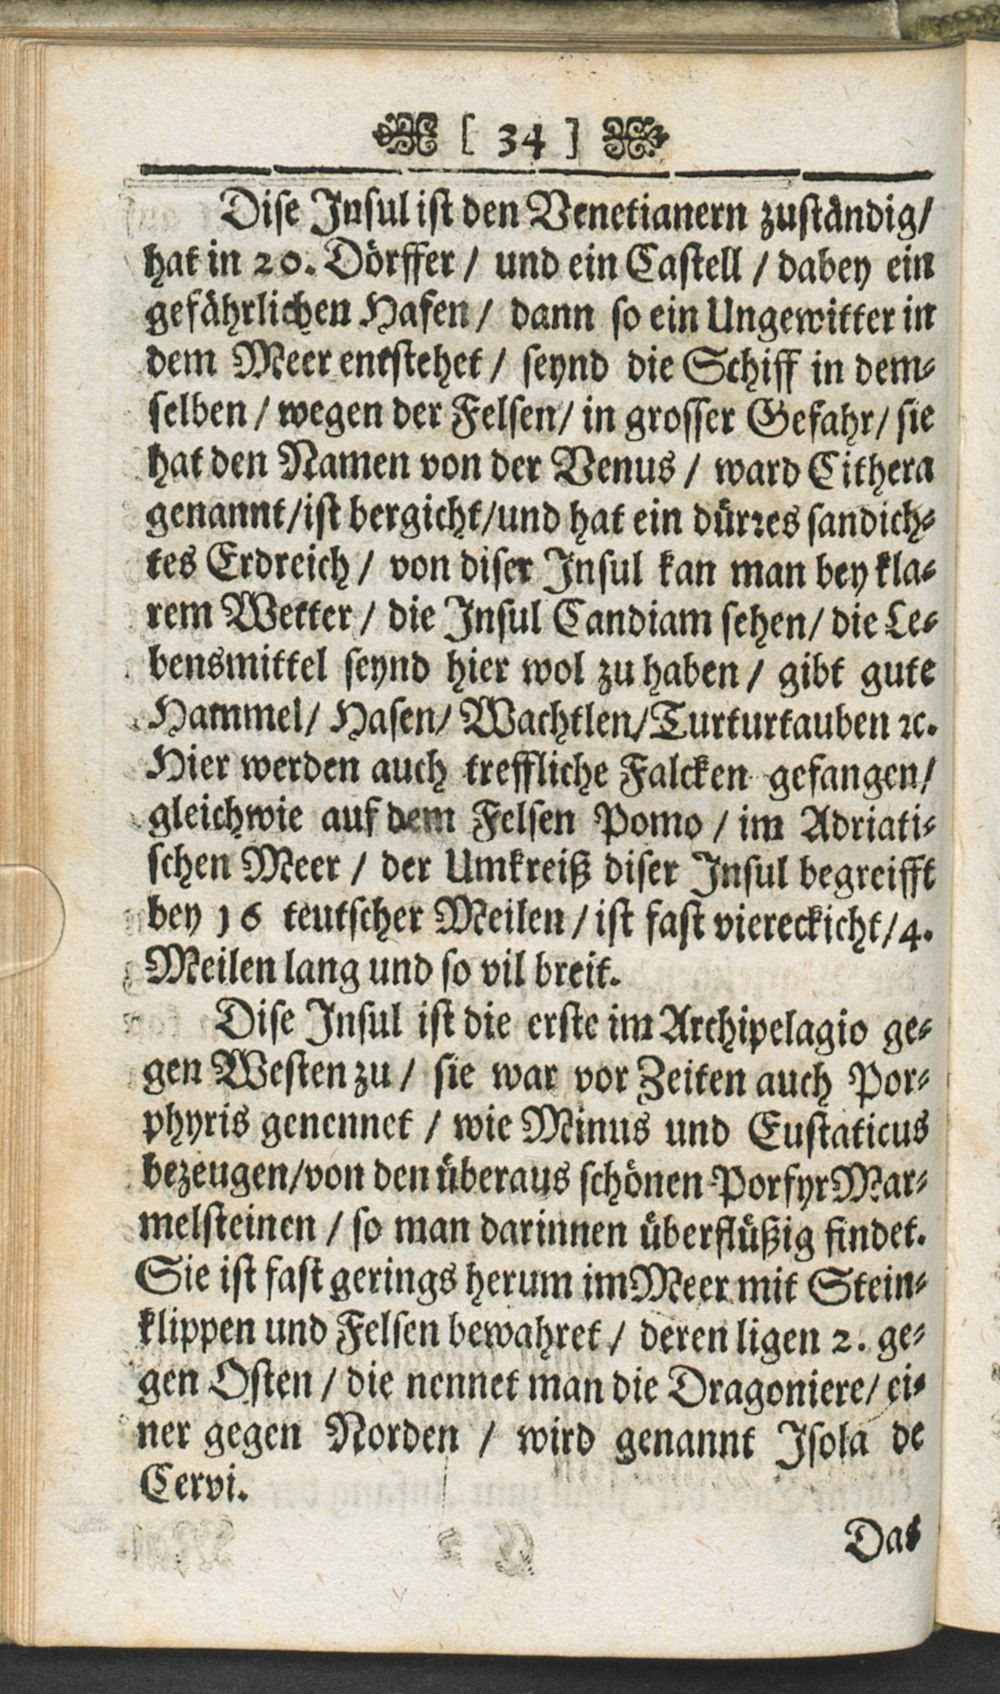 [ 34 ]
Dise Insul ist den Venetianern zuständig/
hat in 20. Dörffer / und ein Castell / dabey ein
gefährlichen Hafen / dann so ein Ungewitter in
dem Meer entstehet / seynd die Schiff in dem-
selben / wegen der Felsen / in grosser Gefahr / sie
hat den Namen von der Venus / ward Cithera
genannt/ist bergicht/und hat ein dürres sandich-
tes Erdreich / von diser Insul kan man bey kla-
rem Wetter / die Insul Candiam sehen / die Le-
bensmittel seynd hier wol zu haben / gibt gute
Hammel/ Hasen/ Wachtlen/Turturtauben ꝛc.
Hier werden auch treffliche Falcken gefangen/
gleichwie auf dem Felsen Pomo / im Adriati-
schen Meer / der Umkreiß diser Insul begreifft
bey 16 teutscher Meilen / ist fast viereckicht/4.
Meilen lang und so vil breit.
Dise Insul ist die erste im Archipelagio ge-
gen Westen zu / sie war vor Zeiten auch Por-
phyris genennet / wie Minus und Eustaticus
bezeugen/von den überaus schönen Porfyr Mar-
melsteinen / so man darinnen überflüßig findet.
Sie ist fast gerings herum im Meer mit Stein-
klippen und Felsen bewahret / deren ligen 2. ge-
gen Osten / die nennet man die Dragoniere/ ei-
ner gegen Norden / wird genannt Isola de
Cervi.
Das